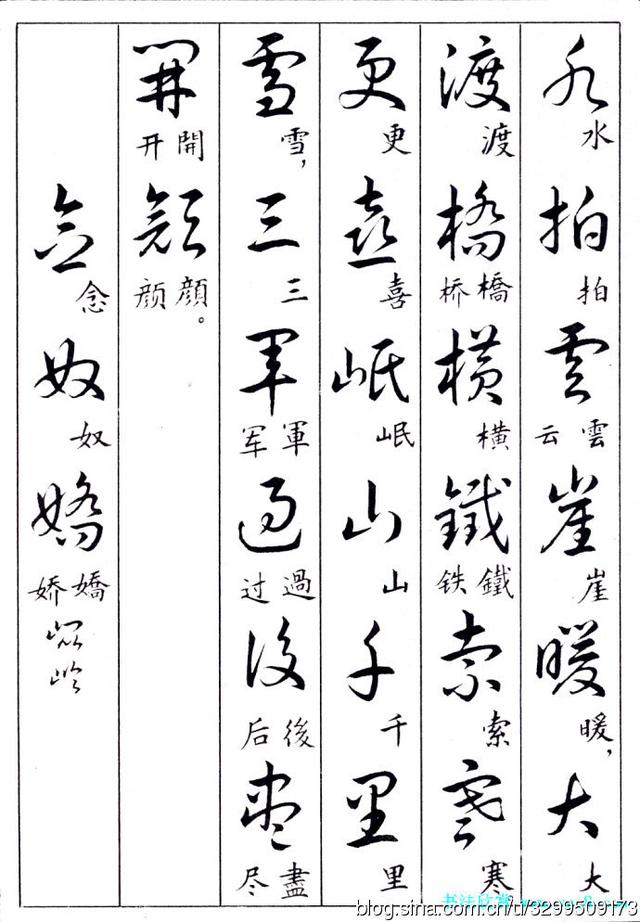 水拍雲崖暖大
水 拍 云雲 崖 暖, 大
渡橋横鐵索寒
渡 桥橋 横 铁鐵 索 寒
更喜岷山千里
更 喜 岷 山 千 里
雪三軍過後盡
雪, 三 军軍 过過 后後 尽盡
開顔
开開 颜顔。
念奴嬌
念 奴 娇嬌
书法欣赏
blog.sina.com.cn/u/3299509173